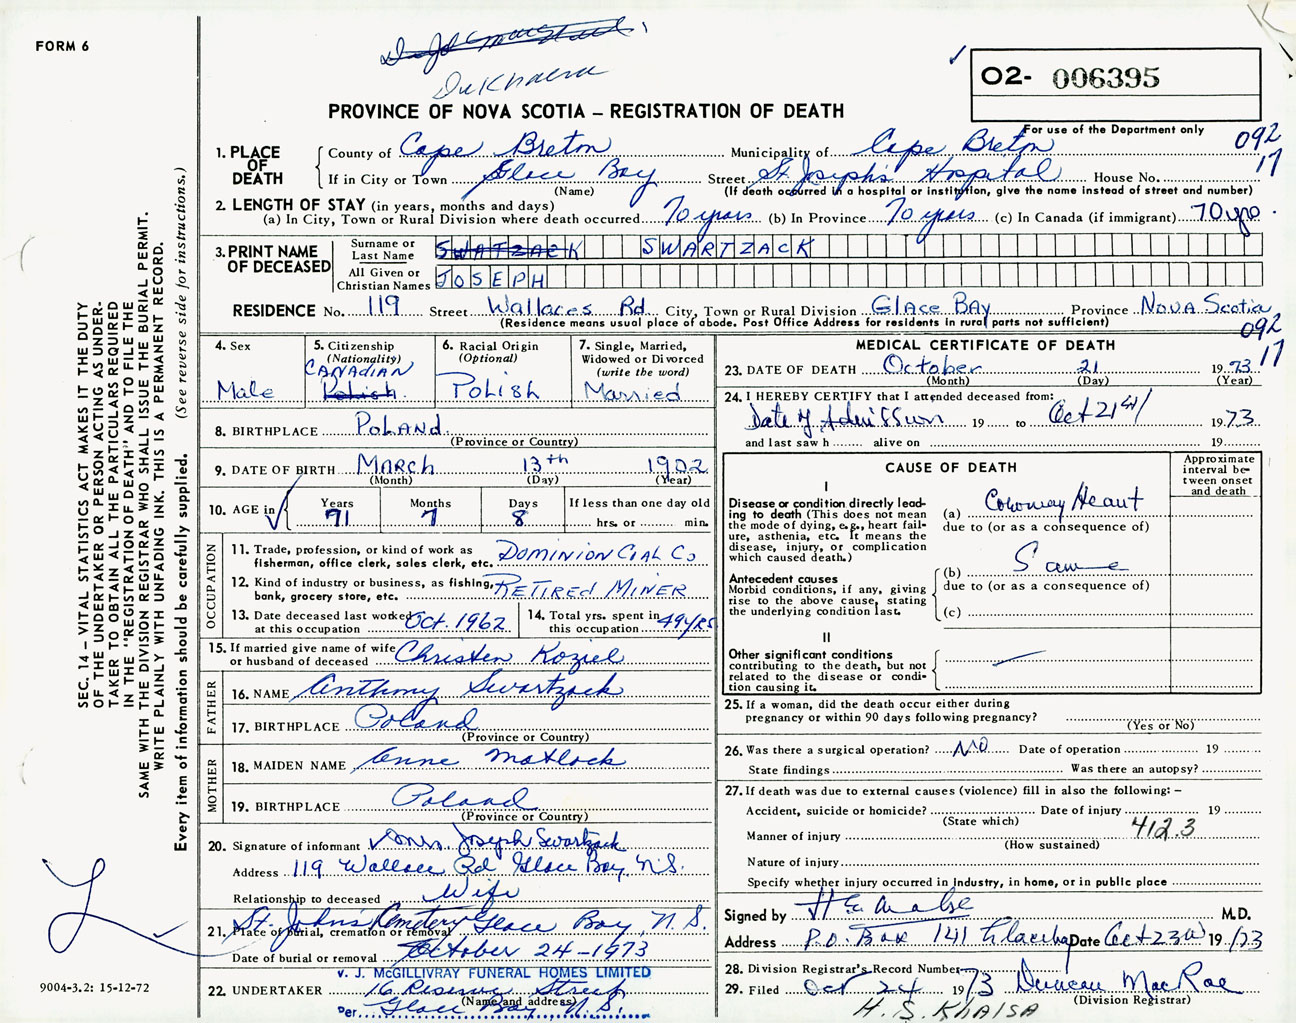 FORM 6
Du Khaera
O2- 006395
PROVINCE OF NOVA SCOTIA – REGISTRATION OF DEATH
For use of the Department only
092
17
1. PLACE OF DEATH
County of Cape Breton Municipality of Cape Breton
If in City or Town Glace Bay Street St Joseph's Hospital House No.
(Name) (If death occurred in a hospital or institution, give the name instead of street and number)
2. LENGTH OF STAY (in years, months and days)
(a) In City, Town or Rural Division where death occurred 70 years (b) In Province 70 years (c) In Canada (if immigrant) 70 yrs.
3. PRINT NAME OF DECEASED
Surname or Last Name SWATZACK SWARTZACK
All Given or Christian Names JOSEPH
RESIDENCE No. 119 Street Wallaces Rd City, Town or Rural Division GLACE BAY Province NOVA Scotia
(Residence means usual place of abode. Post Office Address for residents in rural parts not sufficient)
092
17
4. Sex
Male
5. Citizenship
(Nationality)
CANADIAN
Polish
6. Racial Origin
(Optional)
POLISH
7. Single, Married, Widowed or Divorced
(write the word)
Married
8. BIRTHPLACE POLAND
(Province or Country)
9. DATE OF BIRTH MARCH 13th 1902
(Month) (Day) (Year)
10. AGE in
Years Months Days If less than one day old
71 7 8 hrs. or min.
OCCUPATION
11. Trade, profession, or kind of work as fisherman, office clerk, sales clerk, etc. DOMINION COAL Co
12. Kind of industry or business, as fishing, bank, grocery store, etc. RETIRED MINER
13. Date deceased last worked at this occupation Oct. 1962
14. Total yrs. spent in this occupation 49 YRS
15. If married give name of wife or husband of deceased Christen Koziel
FATHER
16. NAME Anthony Swartzack
17. BIRTHPLACE Poland
(Province or Country)
MOTHER
18. MAIDEN NAME Anne Matlock
19. BIRTHPLACE Poland
(Province or Country)
20. Signature of informant Mrs. Joseph Swartzack
Address 119 Wallace Rd Glace Bay, N.S.
Relationship to deceased Wife
21. Place of burial, cremation or removal St. John's Cemetery Glace Bay, N.S.
Date of burial or removal October 24-1973
V. J. McGILLIVRAY FUNERAL HOMES LIMITED
22. UNDERTAKER 16 Reserve Street
(Name and address)
Per Glace Bay N.S.
MEDICAL CERTIFICATE OF DEATH
23. DATE OF DEATH October 21 1973
(Month) (Day) (Year)
24. I HEREBY CERTIFY that I attended deceased from:
Date of Admission 19 to Oct 21st 1973
and last saw h alive on 19
CAUSE OF DEATH
Approximate interval between onset and death
I
Disease or condition directly leading to death (This does not mean the mode of dying, e.g., heart failure, asthenia, etc. It means the disease, injury, or complication which caused death.)
(a) Coronary Heart
due to (or as a consequence of)
Antecedent causes
Morbid conditions, if any, giving rise to the above cause, stating the underlying condition last.
(b) Same
due to (or as a consequence of)
(c)
II
Other significant conditions
contributing to the death, but not related to the disease or condition causing it.
25. If a woman, did the death occur either during pregnancy or within 90 days following pregnancy?
(Yes or No)
26. Was there a surgical operation? No Date of operation 19
State findings Was there an autopsy?
27. If death was due to external causes (violence) fill in also the following: –
Accident, suicide or homicide? Date of injury 19
(State which) 412.3
Manner of injury
(How sustained)
Nature of injury
Specify whether injury occurred in industry, in home, or in public place
Signed by M.D.
Address P.O. Box 141 Glace Bay Date Oct 23rd 19/73
28. Division Registrar's Record Number
29. Filed Oct 24 1973 Duncan MacRae
(Division Registrar)
H. S. KHALSA
SEC. 14 – VITAL STATISTICS ACT MAKES IT THE DUTY
OF THE UNDERTAKER OR PERSON ACTING AS UNDER-
TAKER TO OBTAIN ALL THE PARTICULARS REQUIRED
IN THE "REGISTRATION OF DEATH" AND TO FILE THE
SAME WITH THE DIVISION REGISTRAR WHO SHALL ISSUE THE BURIAL PERMIT.
WRITE PLAINLY WITH UNFADING INK. THIS IS A PERMANENT RECORD.
Every item of information should be carefully supplied. (See reverse side for instructions.)
9004-3.2: 15-12-72